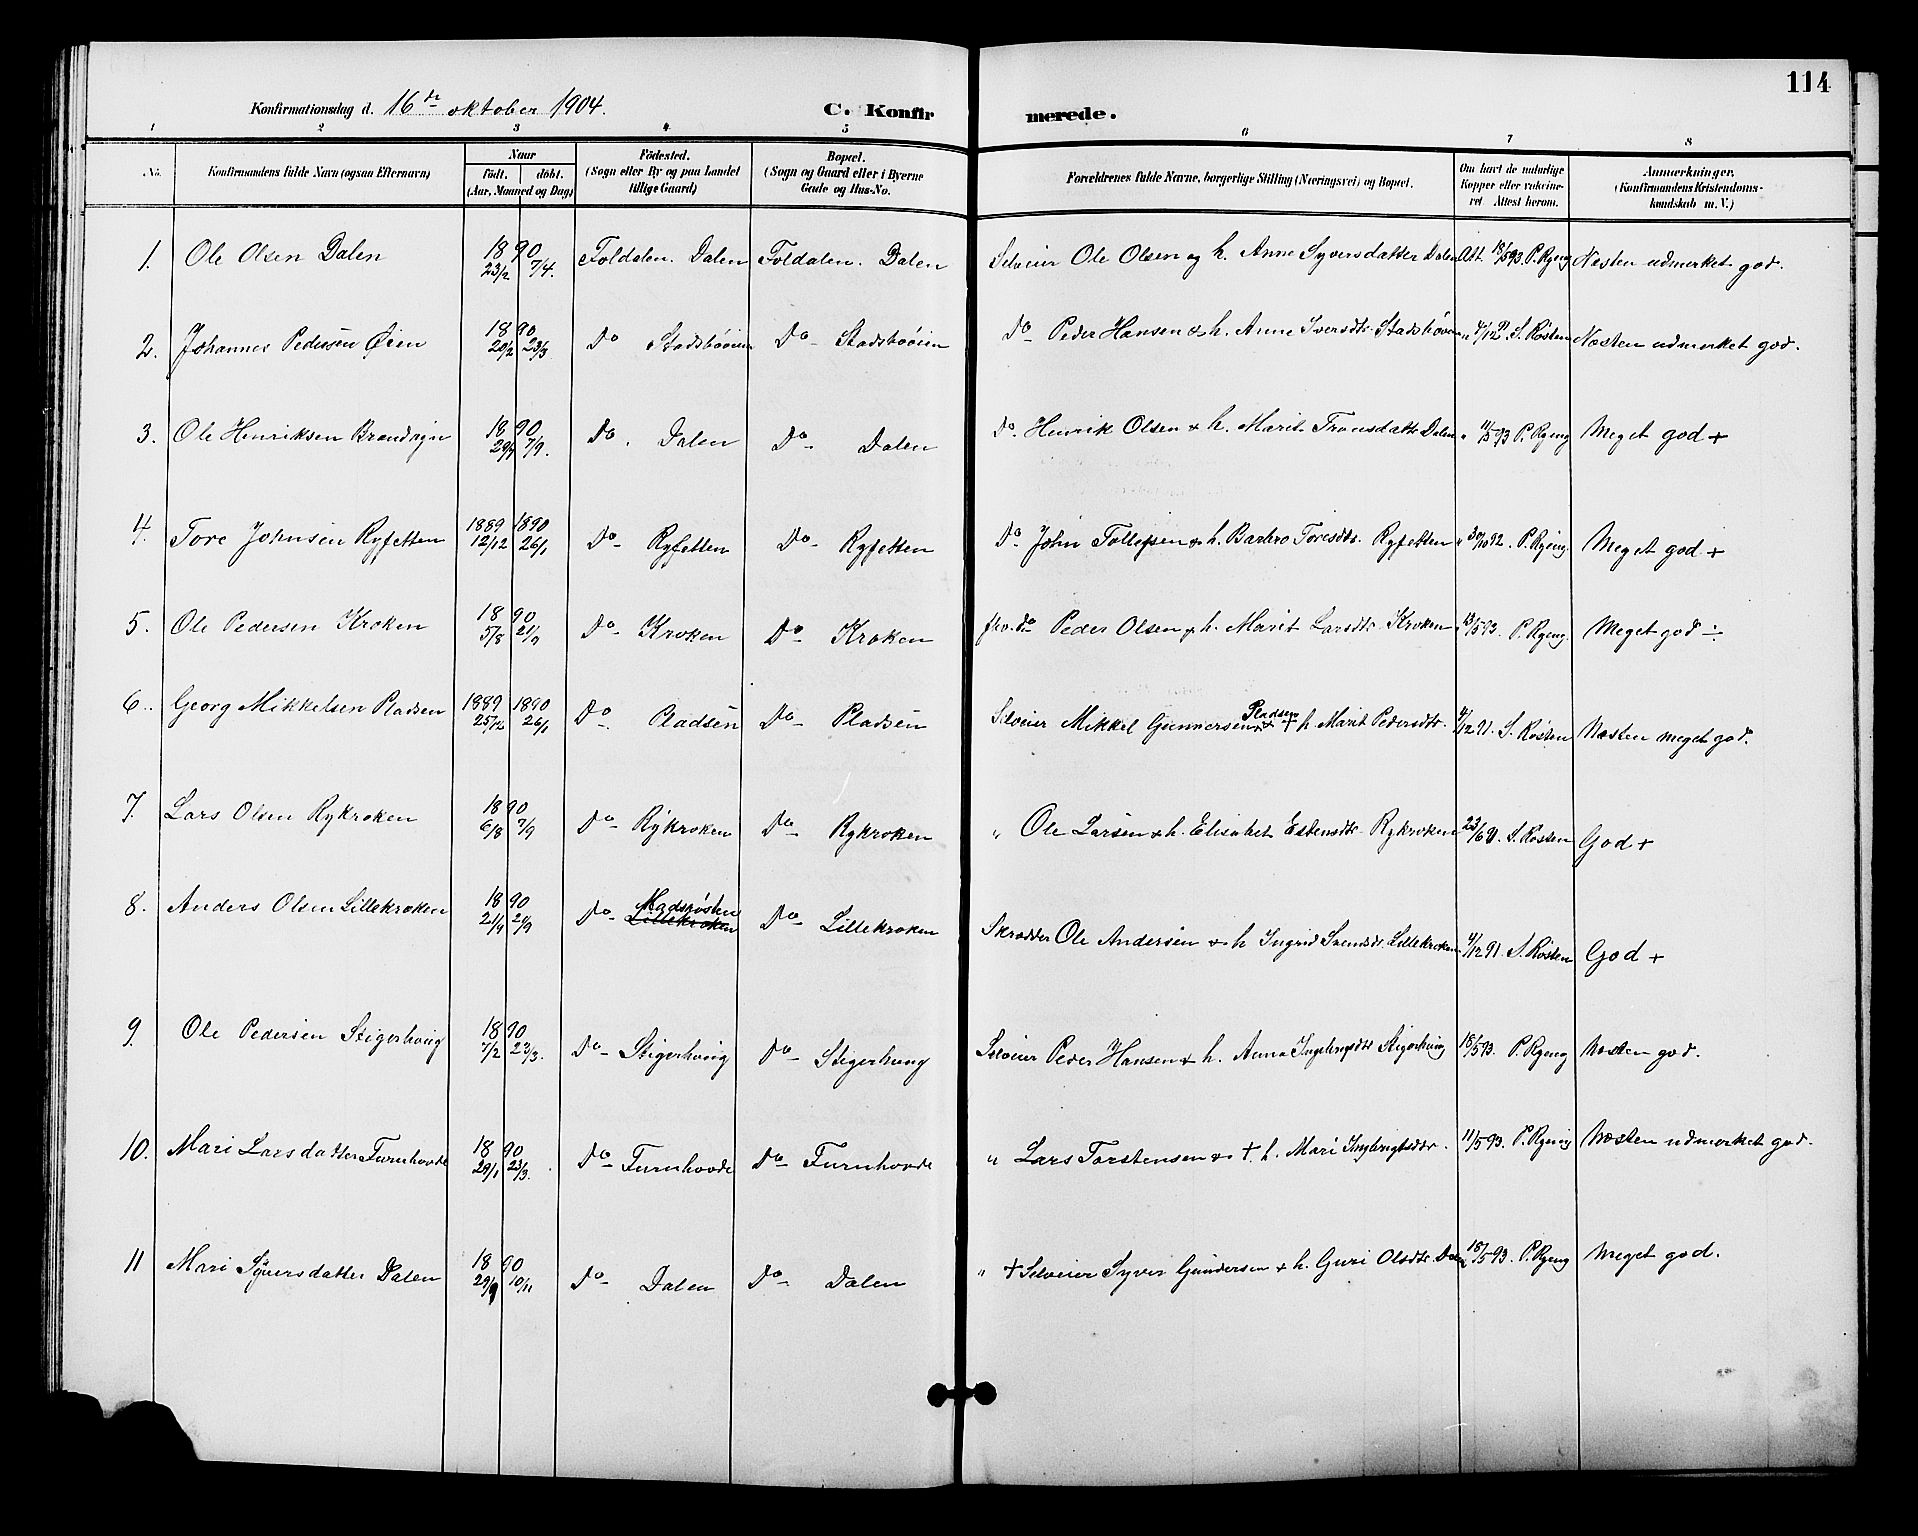 114
Konfirmationsdag d. 16de oktober 1904. C. Konfirmerede.
1 2 3 4 5 6 7 8
No. Konfirmandens fulde Navn (ogsaa Efternavn) Naar født. døbt. (Aar, Maaned og Dag) Fødested. (Sogn eller By og paa Landet tillige Gaard) Bopæl. (Sogn og Gaard eller i Byerne Gade og Hus-No. Forældrenes fulde Navne, borgerlige Stilling (Næringsvei) og Bopæl. Om havt de naturlige Kopper eller vakcineret Attest herom. Anmærkninger. (Konfirmandens Kristendomskundskab m. V.)
1. Ole Olsen Dalen 1890 23/2 7/4. Foldalen. Dalen Foldalen. Dalen Selveier Ole Olsen og h. Anne Syversdatter Dalen Att. 18/5 93. P. Ryeng Næsten udmerket god.
2. Johannes Pedersen Øien 1890 20/2 23/3 Do Stadsbøien Do Stadsbøien Do Peder Hansen & h. Anne Iversdtr. S. Røsten Næsten udmerket god.
3. Ole Henriksen Brandsgn 1890 7/9. Do. Dalen Do Dalen Do. Henrik Olsen & h. Marit Tronsdatter Dalen " 11/5 93 P. Ryeng Meget god +
4. Tore Johnsen Ryfetten 1889 12/12 1890 26/1 Do Ryfetten Do Ryfetten Do. John Tollefsen & h. Barbro Toresdtr. Ryfetten " 30/10 92. P. Ryeng. Meget god +
5. Ole Pedersen Kroken 1890 5/8 21/9 Do Kroken Do Kroken do Peder Olsen & h. Marit Larsdtr. Kroken 13/5 93. P. Ryeng. Meget god ÷
6. Georg Mikkelsen Pladsen 1889 25/12 1890 26/1 Do Pladsen Do Pladsen Selveier Mikkel Gunnersen Pladsen & + h Marit Pedersdtr. 4/12 91. S. Røsten Næsten meget god.
7. Lars Olsen Rykroken 1890 6/8 7/9 Do Rykroken Do Rykroken " Ole Larsen & h. Elisabet Estensdtr. Rykroken 23/6 91. S. Røsten God +
8. Anders Olsen Lillekroken 1890 21/9 Do Madsrøsten Lillekroken Do Lillekroken Skrædder Ole Andersen & h Ingrid Svendsdtr. Lillekroken 4/12 91. S. Røsten God +
9. Ole Pedersen Stigerhoug 1890 7/2 23/3. Do Stigerhoug Do Stigerhoug Selveier Peder Hansen & h. Anna Stigerhoug 18/5 93. P. Ryeng Næsten god.
10. Mari Larsdatter Furuhovde 1890 29/1 23/3. Do Furuhovde Do Furuhovde " Lars Torstensen & + h. Mari Ingbrigtsdtr. 11/5 93. P. Ryeng Næsten udmerket god.
11 Mari Syversdatter Dalen 1890 29/9 10/11 Do Dalen Do Dalen " + Selveier Syver Gundersen & h. Guri Olsdtr. Dalen 18/5 93. P. Ryeng Meget god.